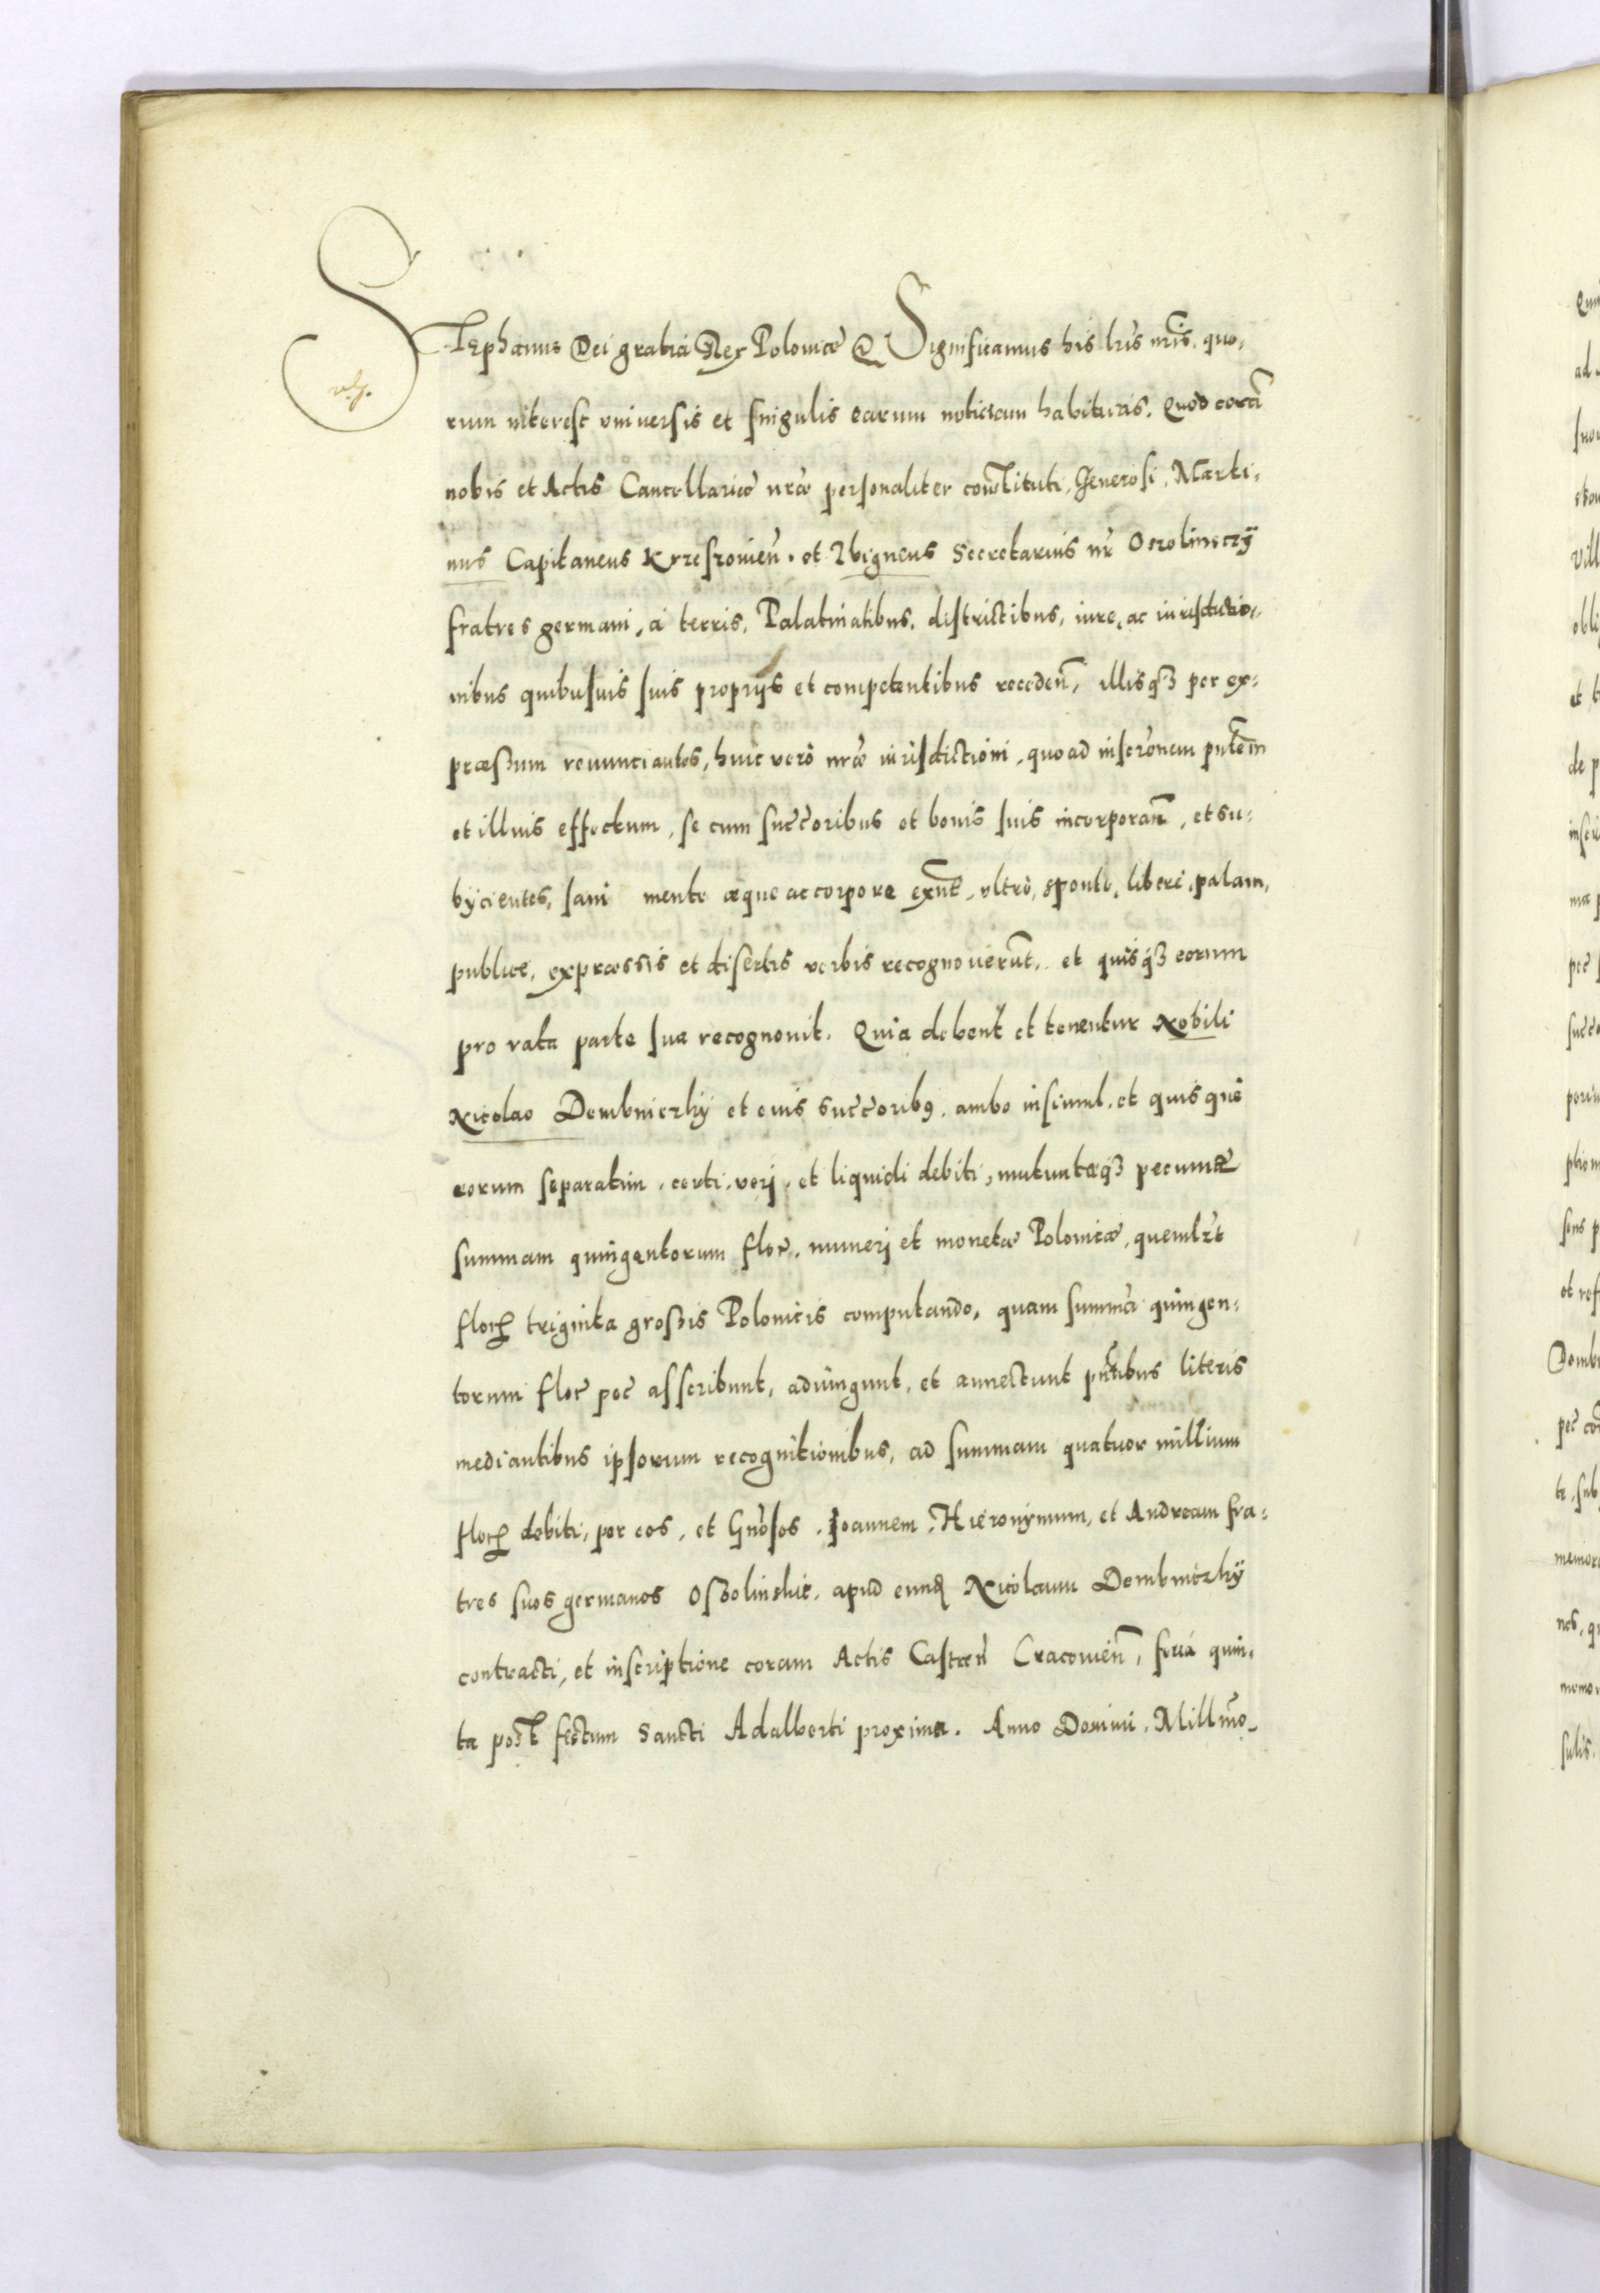 Stephanus Dei gratia Rex Poloniæ &. Significamus his lris nris, quo,
rum interest vniuersis et singulis earum notitiam habituris. Quod corã
nobis et Actis Cancellariæ nræ personaliter constituti, Generosi, Marti,
nus Capitaneus Krzesouien̄. et Zbigneus Secretarius nr̄ Ossolinsczÿ
fratres germani, à terris, Palatinatibus, districtibus, iure, ac iurisdictio,
nibus quibusuis suis proprijs et competentibus receden̄, illisqȝ per ex,
præssum renunciantes, huic verò nræ iurisdictioni, quo ad inscr̄onem pn̄tem
et illius effectum, se cum succ̄oribus et bonis suis incorporan̄, et su,
bÿcientes, sani mente æque ac corpore exn̄t, vltrò, spontè, liberè, palam,
publice, expræssis et disertis verbis recognouerūt, et quisqȝ eorum
pro rata parte sua recognouit. Quia debent et tenentur Nobili
Nicolao Dembniczkÿ et eius succ̄oribꝯ, ambo insimul, et quisque
eorum separatim, certi, veri, et liquidi debiti, mutuatæqȝ pecuniæ
summam quingentorum flor̄, numeri et monetæ Polonicæ, quemlr̄t
flor̄ triginta grossis Polonicis computando, quam summā quingen,
torum flor̄ pec̄ asscribunt, adiungunt, et annectunt pn̄tibus literis
mediantibus ipsorum recognitionibus, ad summam quatuor millium
flor̄ debiti, per eos, et Gn̄osos, Joannem, Hieronÿmum, et Andream fra,
tres suos germanos Ossolinskie, apud eund̄ Nicolaum Dembniczkÿ
contracti, et inscriptione coram Actis Castren̄ Cracouien̄, feria quin,
ta post festum Sancti Adalberti proxima. Anno Domini, Millmo,